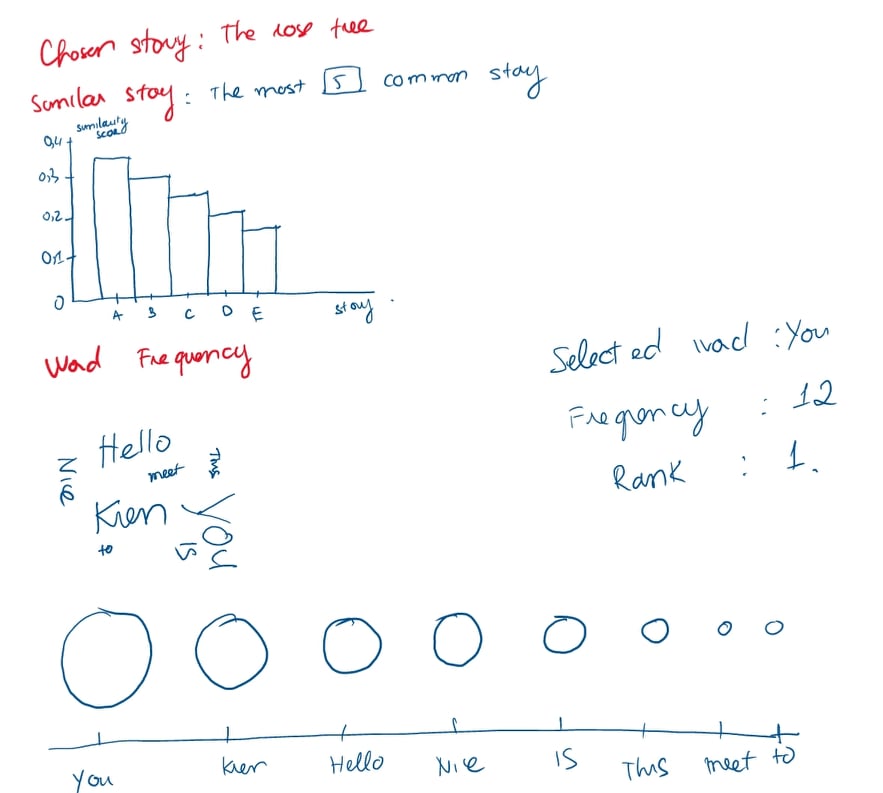 Chosen story: The rose tree
Similar story: The most 5 common story
similarity
score
0,4
0,3
0,2
0,1
0
A B C D E
story
Word Frequency
Selected word : You
Freqency : 12
Rank : 1.
Hello
Nice
meet
This
Kien
You
to
is
You Kien Hello Nice IS This meet to